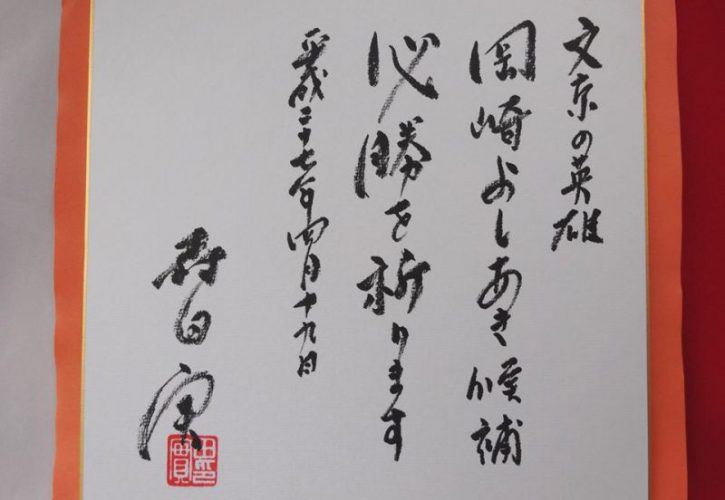 文京の英雄
岡崎よしあき候補
必勝を祈ります
平成二十七年四月十九日